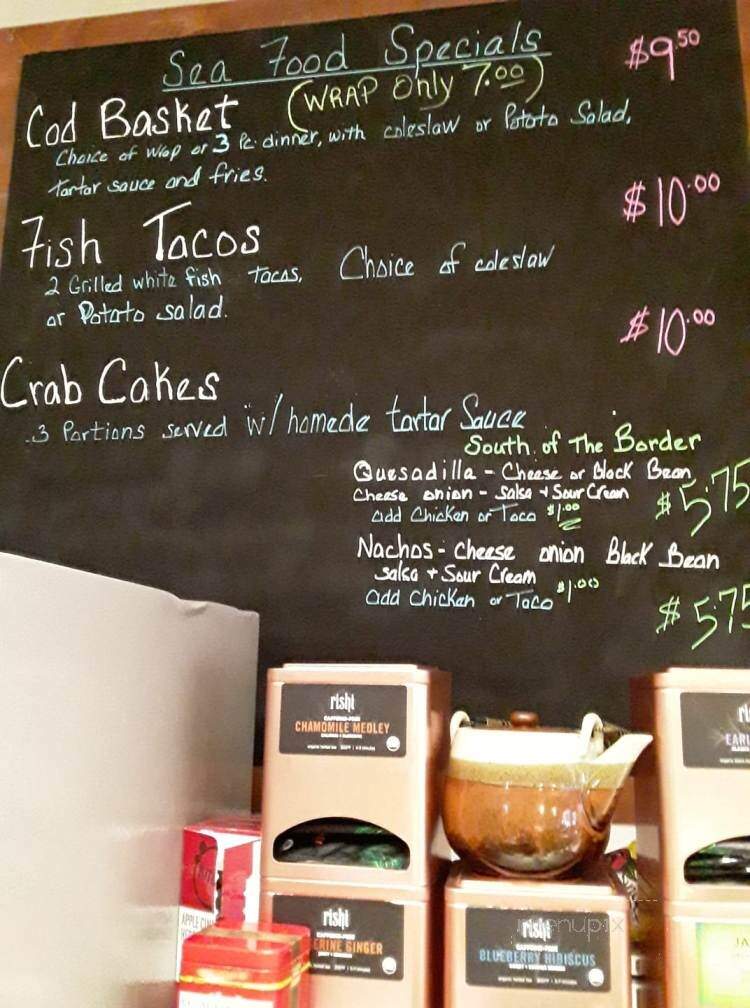 Sea Food Specials
$9.50
Cod Basket (WRAP Only 7.00)
Choice of Wrap or 3 Pc. dinner, with coleslaw or Potato Salad,
tartar sauce and fries.
$10.00
Fish Tacos
2 Grilled white fish Tacos, Choice of coleslaw
or Potato salad.
$10.00
Crab Cakes
3 Portions served w/ homede tartar Sauce
South of The Border
Quesadilla - Cheese or Black Bean
Cheese onion - Salsa + Sour Cream $5.75
add Chicken or Taco $1.00
Nachos - Cheese onion Black Bean
Salsa + Sour Cream
add Chicken or Taco $1.00
$575
rishi
CAFFEINE-FREE
CHAMOMILE MEDLEY
rishi
CAFFEINE-FREE
ERINE GINGER
rishi
CAFFEINE-FREE
BLUEBERRY HIBISCUS
ri
EARL
APPLE CIN
JA
menupix